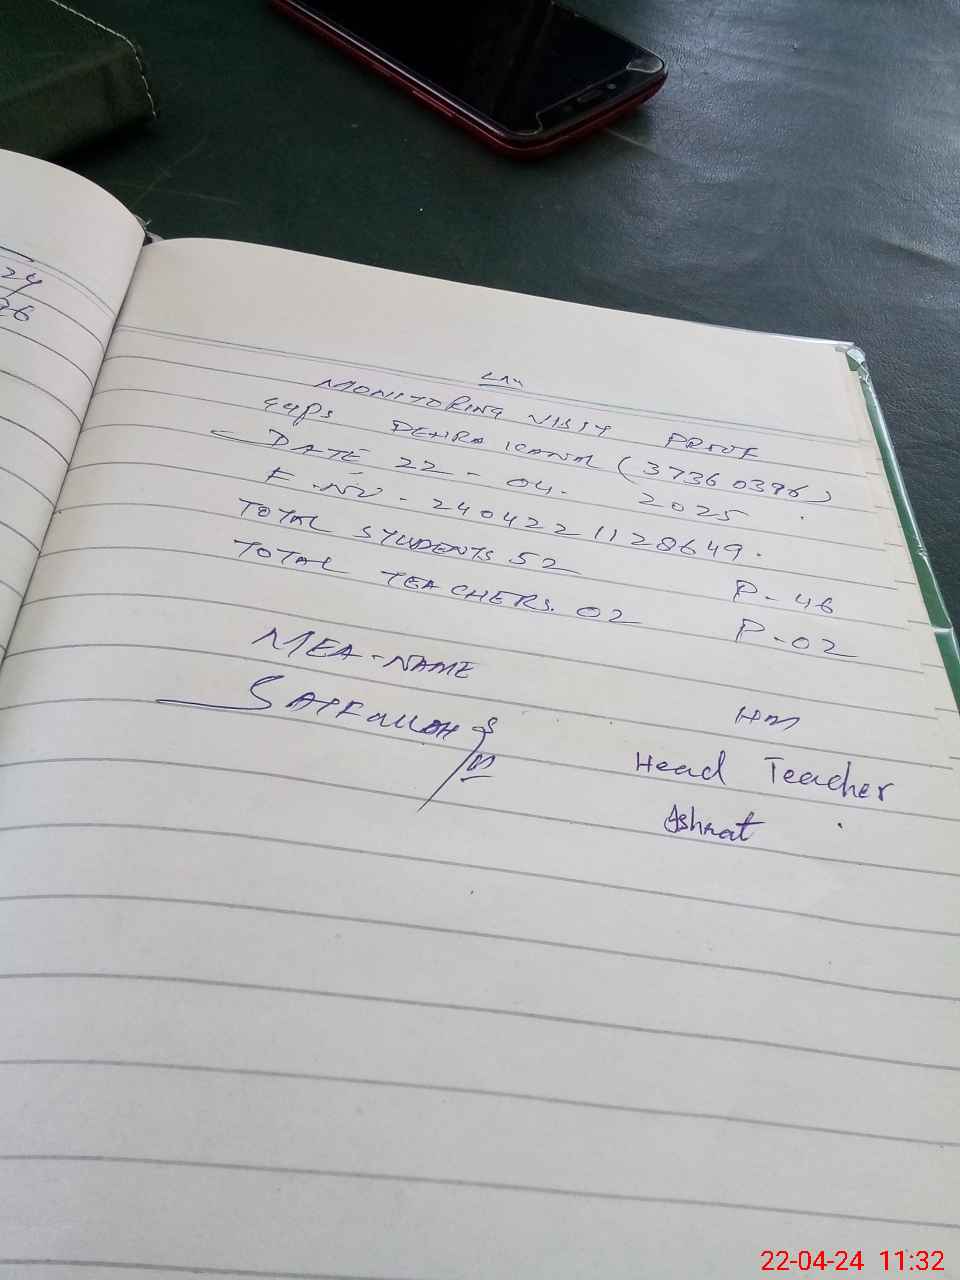 24
96
MONITORING VISIT PROOF
GGPS DEHRA KANAL (37360396)
DATE 22-04-2025
F.No-2404221128649.
TOTAL STUDENTS 52 P-46
TOTAL TEACHERS. 02 P-02
MEA-NAME
SAIFULLAH
HM
Head Teacher
Ashrat
22-04-24 11:32